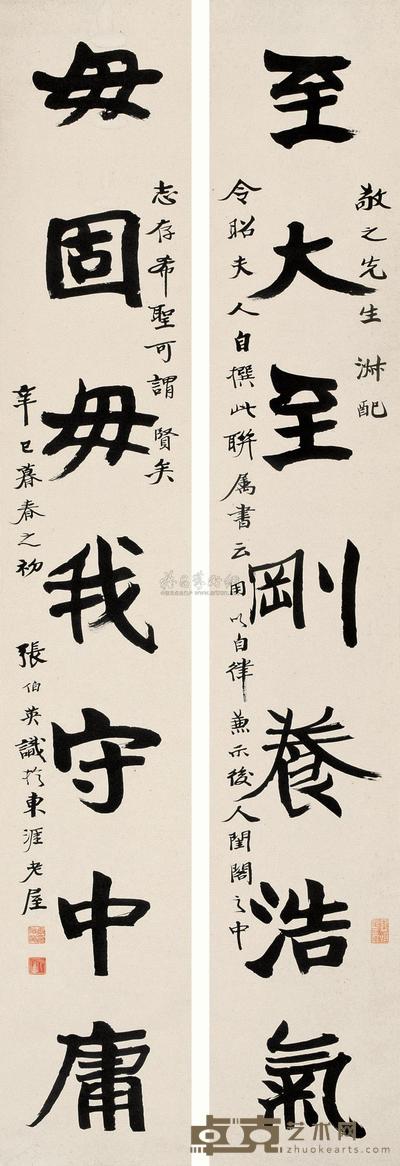 至大至剛養浩氣
敬之先生淋配
令昭夫人自撰此聯属書云用以自律兼示後人閨閣之中
毋固毋我守中庸
志存希聖可謂賢矣
辛巳暮春之初 張伯英識於東涯老屋
卓克艺术网
www.zhuokearts.com